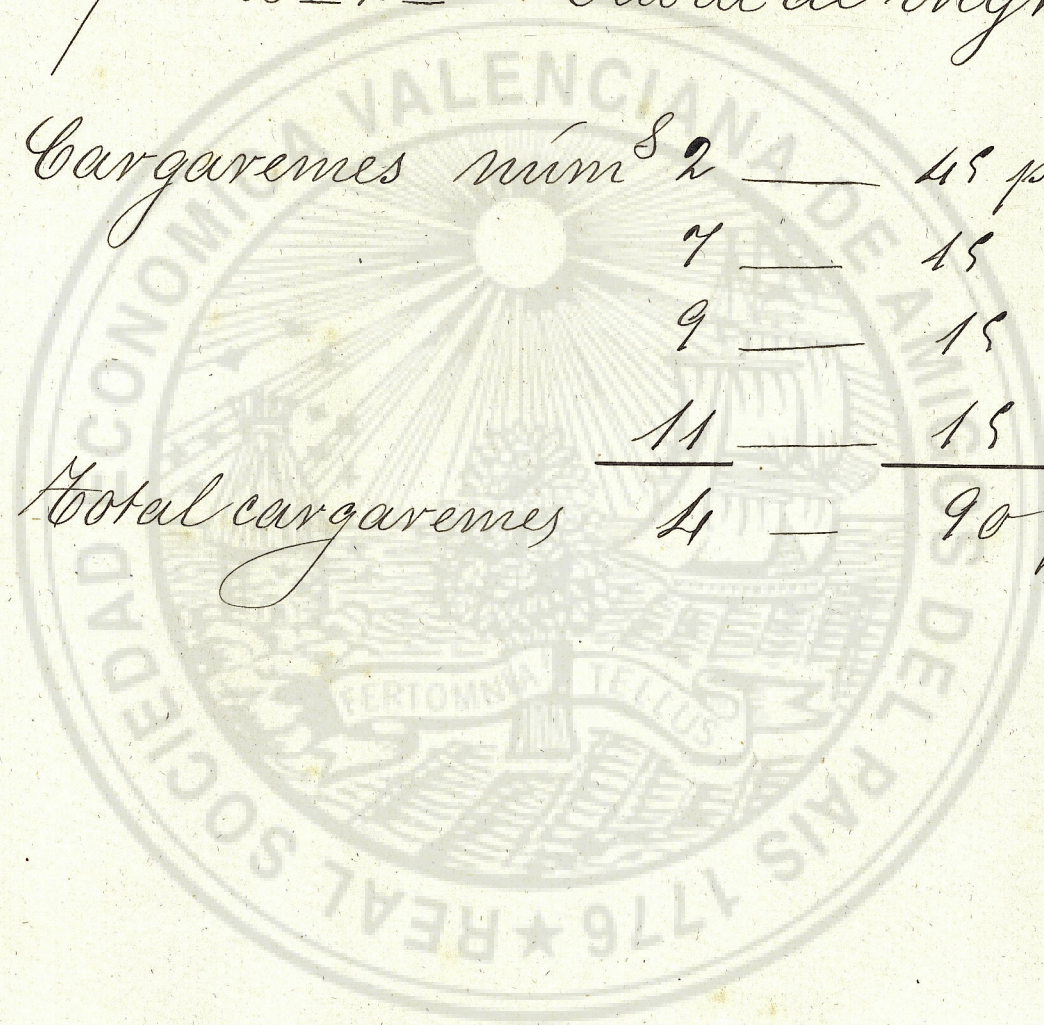 Cargaremes núm⁸ 2 — 45 p
7 — 15
9 — 15
11 — 15
Total cargaremes 4 — 90
REAL SOCIEDAD ECONOMICA VALENCIANA DE AMIGOS DEL PAIS 1776 ★
FERTOMNIA TELLUS